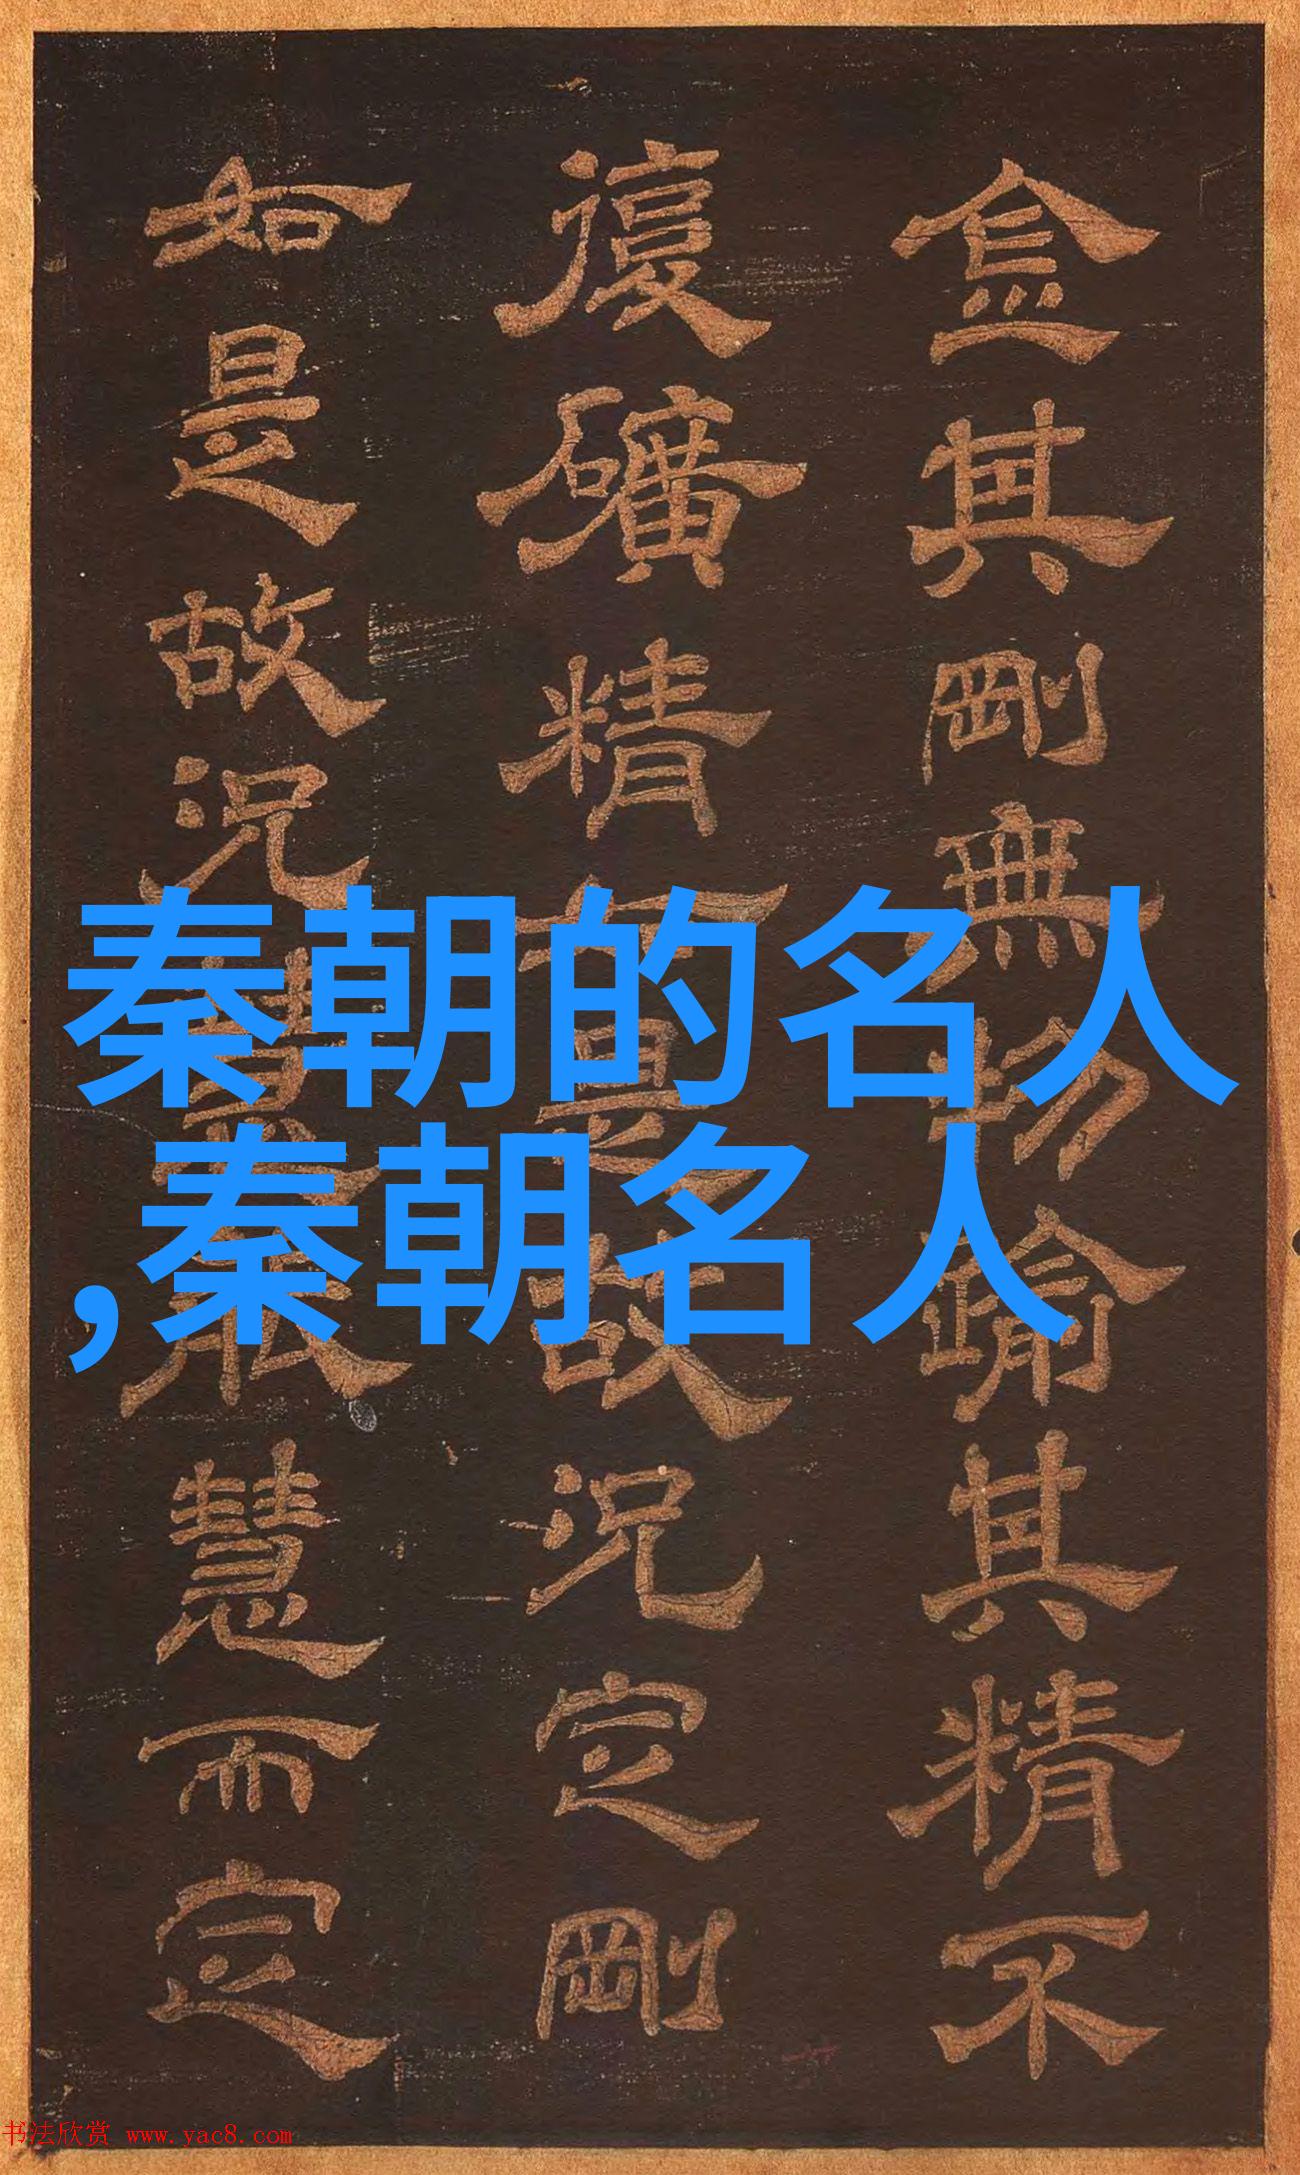 秦朝的名人
,秦朝名人
金其剛無物踰其精不
復礦精故況定剛
如是故況慧慧而定
书法欣赏 www.yac8.com